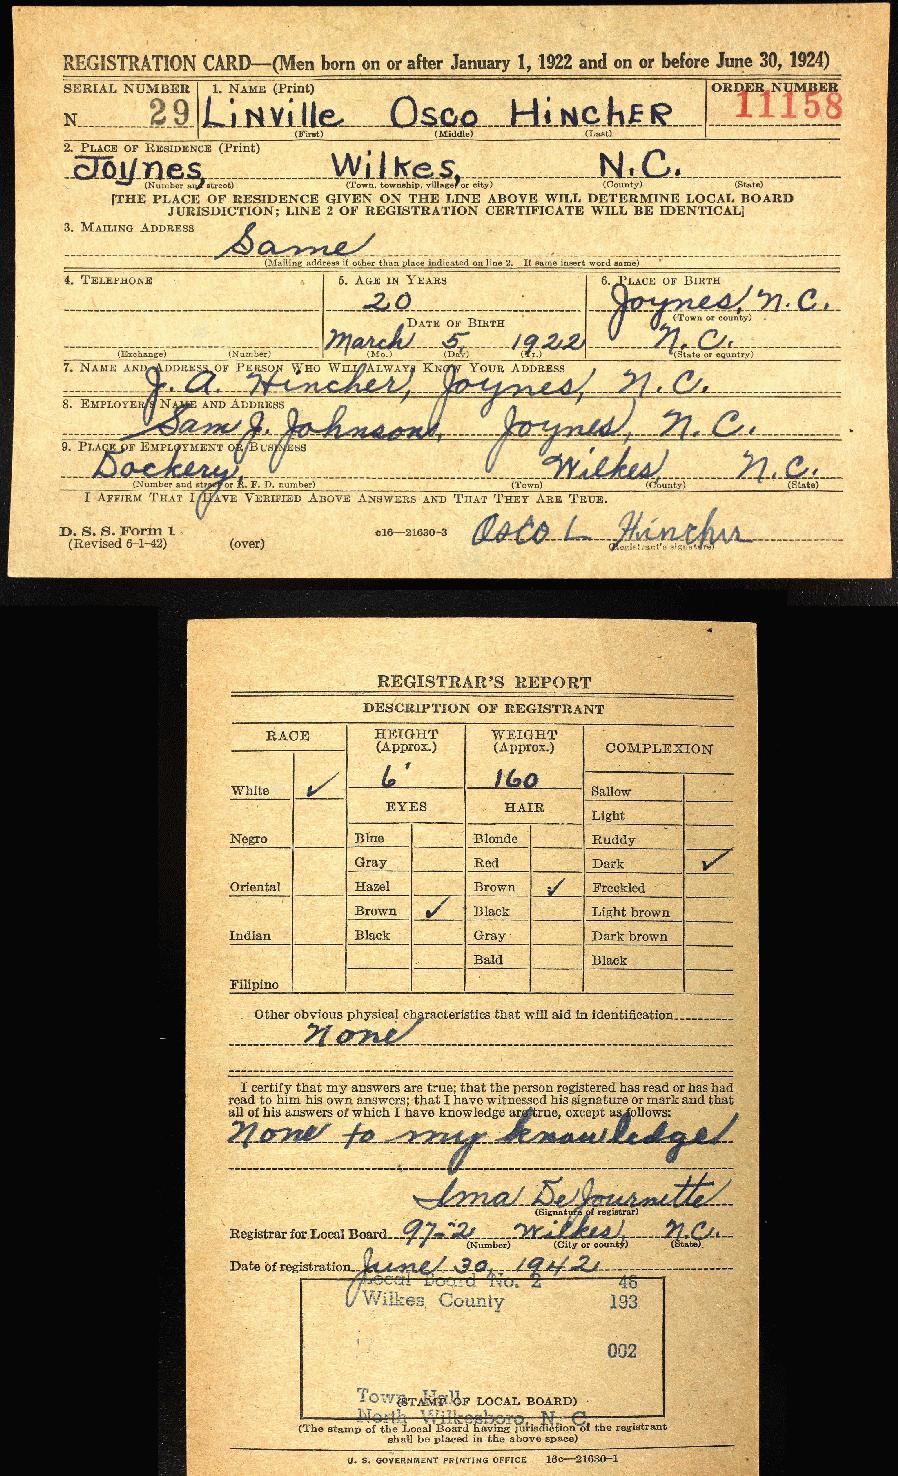 REGISTRATION CARD—(Men born on or after January 1, 1922 and on or before June 30, 1924)
SERIAL NUMBER 1. NAME (Print) ORDER NUMBER
N 29 LINVILLE OSCO HINCHER 11158
(First) (Middle) (Last)
2. PLACE OF RESIDENCE (Print)
Joynes, Wilkes, N.C.
(Number and street) (Town, township, village, or city) (County) (State)
[THE PLACE OF RESIDENCE GIVEN ON THE LINE ABOVE WILL DETERMINE LOCAL BOARD
JURISDICTION; LINE 2 OF REGISTRATION CERTIFICATE WILL BE IDENTICAL]
3. MAILING ADDRESS
Same
(Mailing address if other than place indicated on line 2. If same insert word same)
4. TELEPHONE 5. AGE IN YEARS 6. PLACE OF BIRTH
20 Joynes, N.C.
(Town or county)
DATE OF BIRTH
March 5, 1922 N.C.
(Exchange) (Number) (Mo.) (Day) (Yr.) (State or country)
7. NAME AND ADDRESS OF PERSON WHO WILL ALWAYS KNOW YOUR ADDRESS
J. A. Hincher, Joynes, N.C.
8. EMPLOYER'S NAME AND ADDRESS
Sam J. Johnson, Joynes, N.C.
9. PLACE OF EMPLOYMENT OR BUSINESS
Dockery, Wilkes, N.C.
(Number and street or R. F. D. number) (Town) (County) (State)
I AFFIRM THAT I HAVE VERIFIED ABOVE ANSWERS AND THAT THEY ARE TRUE.
D. S. S. Form 1
(Revised 6-1-42) (over) c16—21630-3 Osco L Hincher
(Registrant's signature)
REGISTRAR'S REPORT
DESCRIPTION OF REGISTRANT
RACE HEIGHT (Approx.) WEIGHT (Approx.) COMPLEXION
6' 160
White ✓ Sallow
EYES HAIR Light
Negro Blue Blonde Ruddy
Gray Red Dark ✓
Oriental Hazel Brown ✓ Freckled
Brown ✓ Black Light brown
Indian Black Gray Dark brown
Bald Black
Filipino
Other obvious physical characteristics that will aid in identification
None
I certify that my answers are true; that the person registered has read or has had
read to him his own answers; that I have witnessed his signature or mark and that
all of his answers of which I have knowledge are true, except as follows:
None to my knowledge
Ima DeJournette
(Signature of registrar)
Registrar for Local Board 97-2 Wilkes, N.C.
(Number) (City or county) (State)
Date of registration June 30, 1942
Local Board No. 2 46
Wilkes County 193
002
Town Hall
(STAMP OF LOCAL BOARD)
North Wilkesboro, N. C.
(The stamp of the Local Board having jurisdiction of the registrant
shall be placed in the above space)
U. S. GOVERNMENT PRINTING OFFICE 16c—21630-1